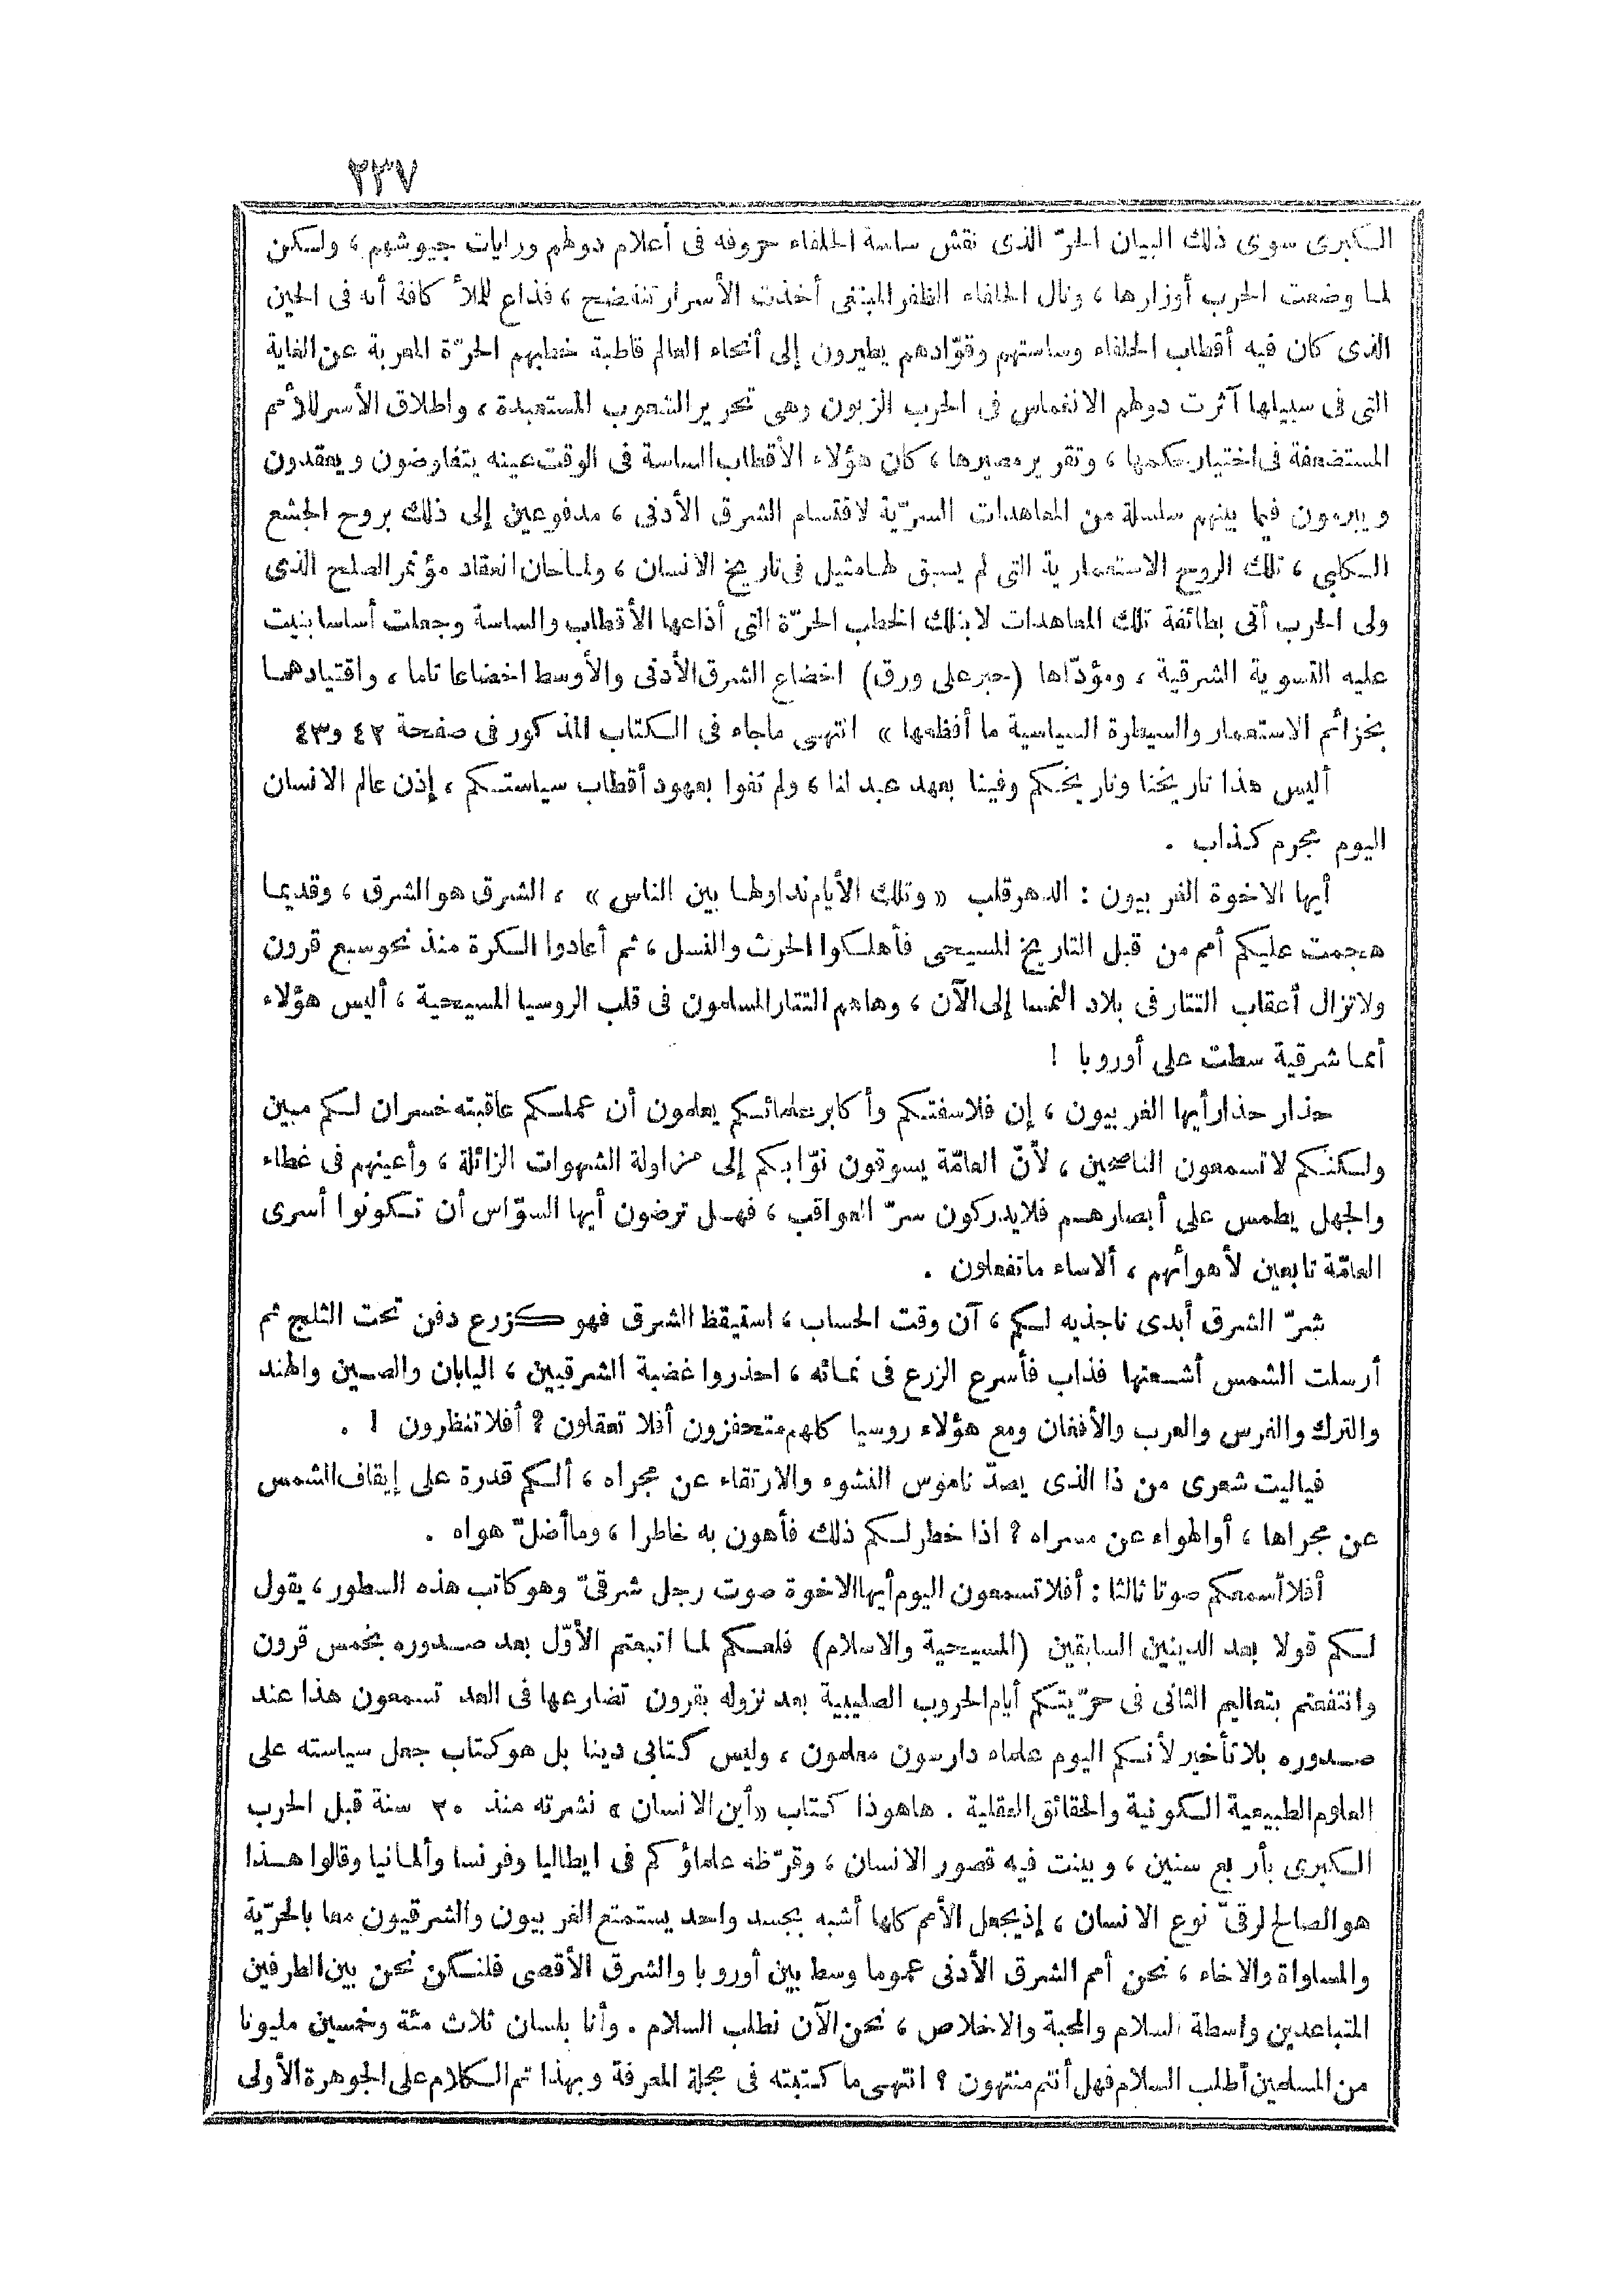 ٢٣٧
الكبرى سوى ذلك البيان الحرّ الذى نقش ساسة الحلفاء حروفه فى أعلام دولهم ورايات جيوشهم ، ولكن
لما وضعت الحرب أوزارها ، ونال الحلفاء الظفر المبتغى أخذت الأسرار تنفضح ، فذاع للملأ كافة أنه فى الحين
الذى كان فيه أقطاب الحلفاء وساستهم وقوّادهم يطيرون إلى أنحاء العالم قاطبة خطبهم الحرّة المعربة عن الغاية
التى فى سبيلها آثرت دولهم الانغماس فى الحرب الزبون وهى تحرير الشعوب المستعبدة ، واطلاق الأسر للأمم
المستضعفة فى اختيار حكمها ، وتقرير مصيرها ، كان هؤلاء الأقطاب الساسة فى الوقت عينه يتفاوضون ويعقدون
ويبرمون فيما بينهم سلسلة من المعاهدات السرّية لاقتسام الشرق الأدنى ، مدفوعين إلى ذلك بروح الجشع
الكلبى ، تلك الروح الاستعمارية التى لم يسبق لها مثيل فى تاريخ الانسان ، ولما حان انعقاد مؤتمر الصلح الذى
ولى الحرب أتى بطائفة تلك المعاهدات لا بتلك الخطب الحرّة التى أذاعها الأقطاب والساسة وجعلت أساسا بنيت
عليه التسوية الشرقية ، ومؤدّاها (حبر على ورق) اخضاع الشرق الأدنى والأوسط اخضاعا تاما ، واقتيادهما
بخزائم الاستعمار والسيطرة السياسية ما أفظعها » انتهى ماجاء فى الكتاب المذكور فى صفحة ٤٢ و٤٣
أليس هذا تاريخنا وتاريخكم وفينا بعهد عبد لنا ، ولم تفوا بعهود أقطاب سياستكم ، إذن عالم الانسان
اليوم مجرم كذاب .
أيها الاخوة الغربيون : الدهر قلب « وتلك الأيام نداولها بين الناس » ، الشرق هو الشرق ، وقديما
هجمت عليكم أمم من قبل التاريخ المسيحى فأهلكوا الحرث والنسل ، ثم أعادوا الكرة منذ نحو سبع قرون
ولا تزال أعقاب التتار فى بلاد النمسا إلى الآن ، وهاهم التتار المسلمون فى قلب الروسيا المسيحية ، أليس هؤلاء
أمما شرقية سطت على أوروبا !
حذار حذار أيها الغربيون ، إن فلاسفتكم وأكابر علمائكم يعلمون أن عملكم عاقبته خسران لكم مبين
ولكنكم لا تسمعون الناصحين ، لأنّ العامّة يسوقون نوّابكم إلى مزاولة الشهوات الزائلة ، وأعينهم فى غطاء
والجهل يطمس على أبصارهم فلا يدركون سرّ العواقب ، فهل ترضون أيها السوّاس أن تكونوا أسرى
العامّة تابعين لأهوائهم ، ألا ساء ما تفعلون .
شرّ الشرق أبدى ناجذيه لكم ، آن وقت الحساب ، استيقظ الشرق فهو كزرع دفن تحت الثلج ثم
أرسلت الشمس أشعتها فذاب فأسرع الزرع فى نمائه ، احذروا غضبة الشرقيين ، اليابان والصين والهند
والترك والفرس والعرب والأفغان ومع هؤلاء روسيا كلهم متحفزون أفلا تعقلون ? أفلا تنظرون ! .
فياليت شعرى من ذا الذى يصدّ ناموس النشوء والارتقاء عن مجراه ، ألكم قدرة على إيقاف الشمس
عن مجراها ، أو الهواء عن مسراه ? اذا خطر لكم ذلك فأهون به خاطرا ، وما أضلّ هواه .
أفلا أسمعكم صوتا ثالثا : أفلا تسمعون اليوم أيها الاخوة صوت رجل شرقىّ وهو كاتب هذه السطور ، يقول
لكم قولا بعد الدينين السابقين (المسيحية والاسلام) فلعلكم لما اتبعتم الأوّل بعد صدوره بخمس قرون
وانتفعتم بتعاليم الثانى فى حرّيتكم أيام الحروب الصليبية بعد نزوله بقرون تضارعها فى العد تسمعون هذا عند
صدوره بلا تأخير لأنكم اليوم علماء دارسون معلمون ، وليس كتابى دينا بل هو كتاب جعل سياسته على
العلوم الطبيعية الكونية والحقائق العقلية . هاهوذا كتاب «أين الانسان» نشرته منذ ٢٠ سنة قبل الحرب
الكبرى بأربع سنين ، وبينت فيه قصور الانسان ، وقرّظه علماؤكم فى ايطاليا وفرنسا وألمانيا وقالوا هذا
هو الصالح لرقىّ نوع الانسان ، إذ يجعل الأمم كلها أشبه بجسد واحد يستمتع الغربيون والشرقيون معا بالحرّية
والمساواة والاخاء ، نحن أمم الشرق الأدنى عموما وسط بين أوروبا والشرق الأقصى فلنكن نحن بين الطرفين
المتباعدين واسطة السلام والمحبة والاخلاص ، نحن الآن نطلب السلام . وأنا بلسان ثلاث مئة وخمسين مليونا
من المسلمين أطلب السلام فهل أنتم منتهون ? انتهى ما كتبته فى مجلة المعرفة وبهذا تم الكلام على الجوهرة الأولى